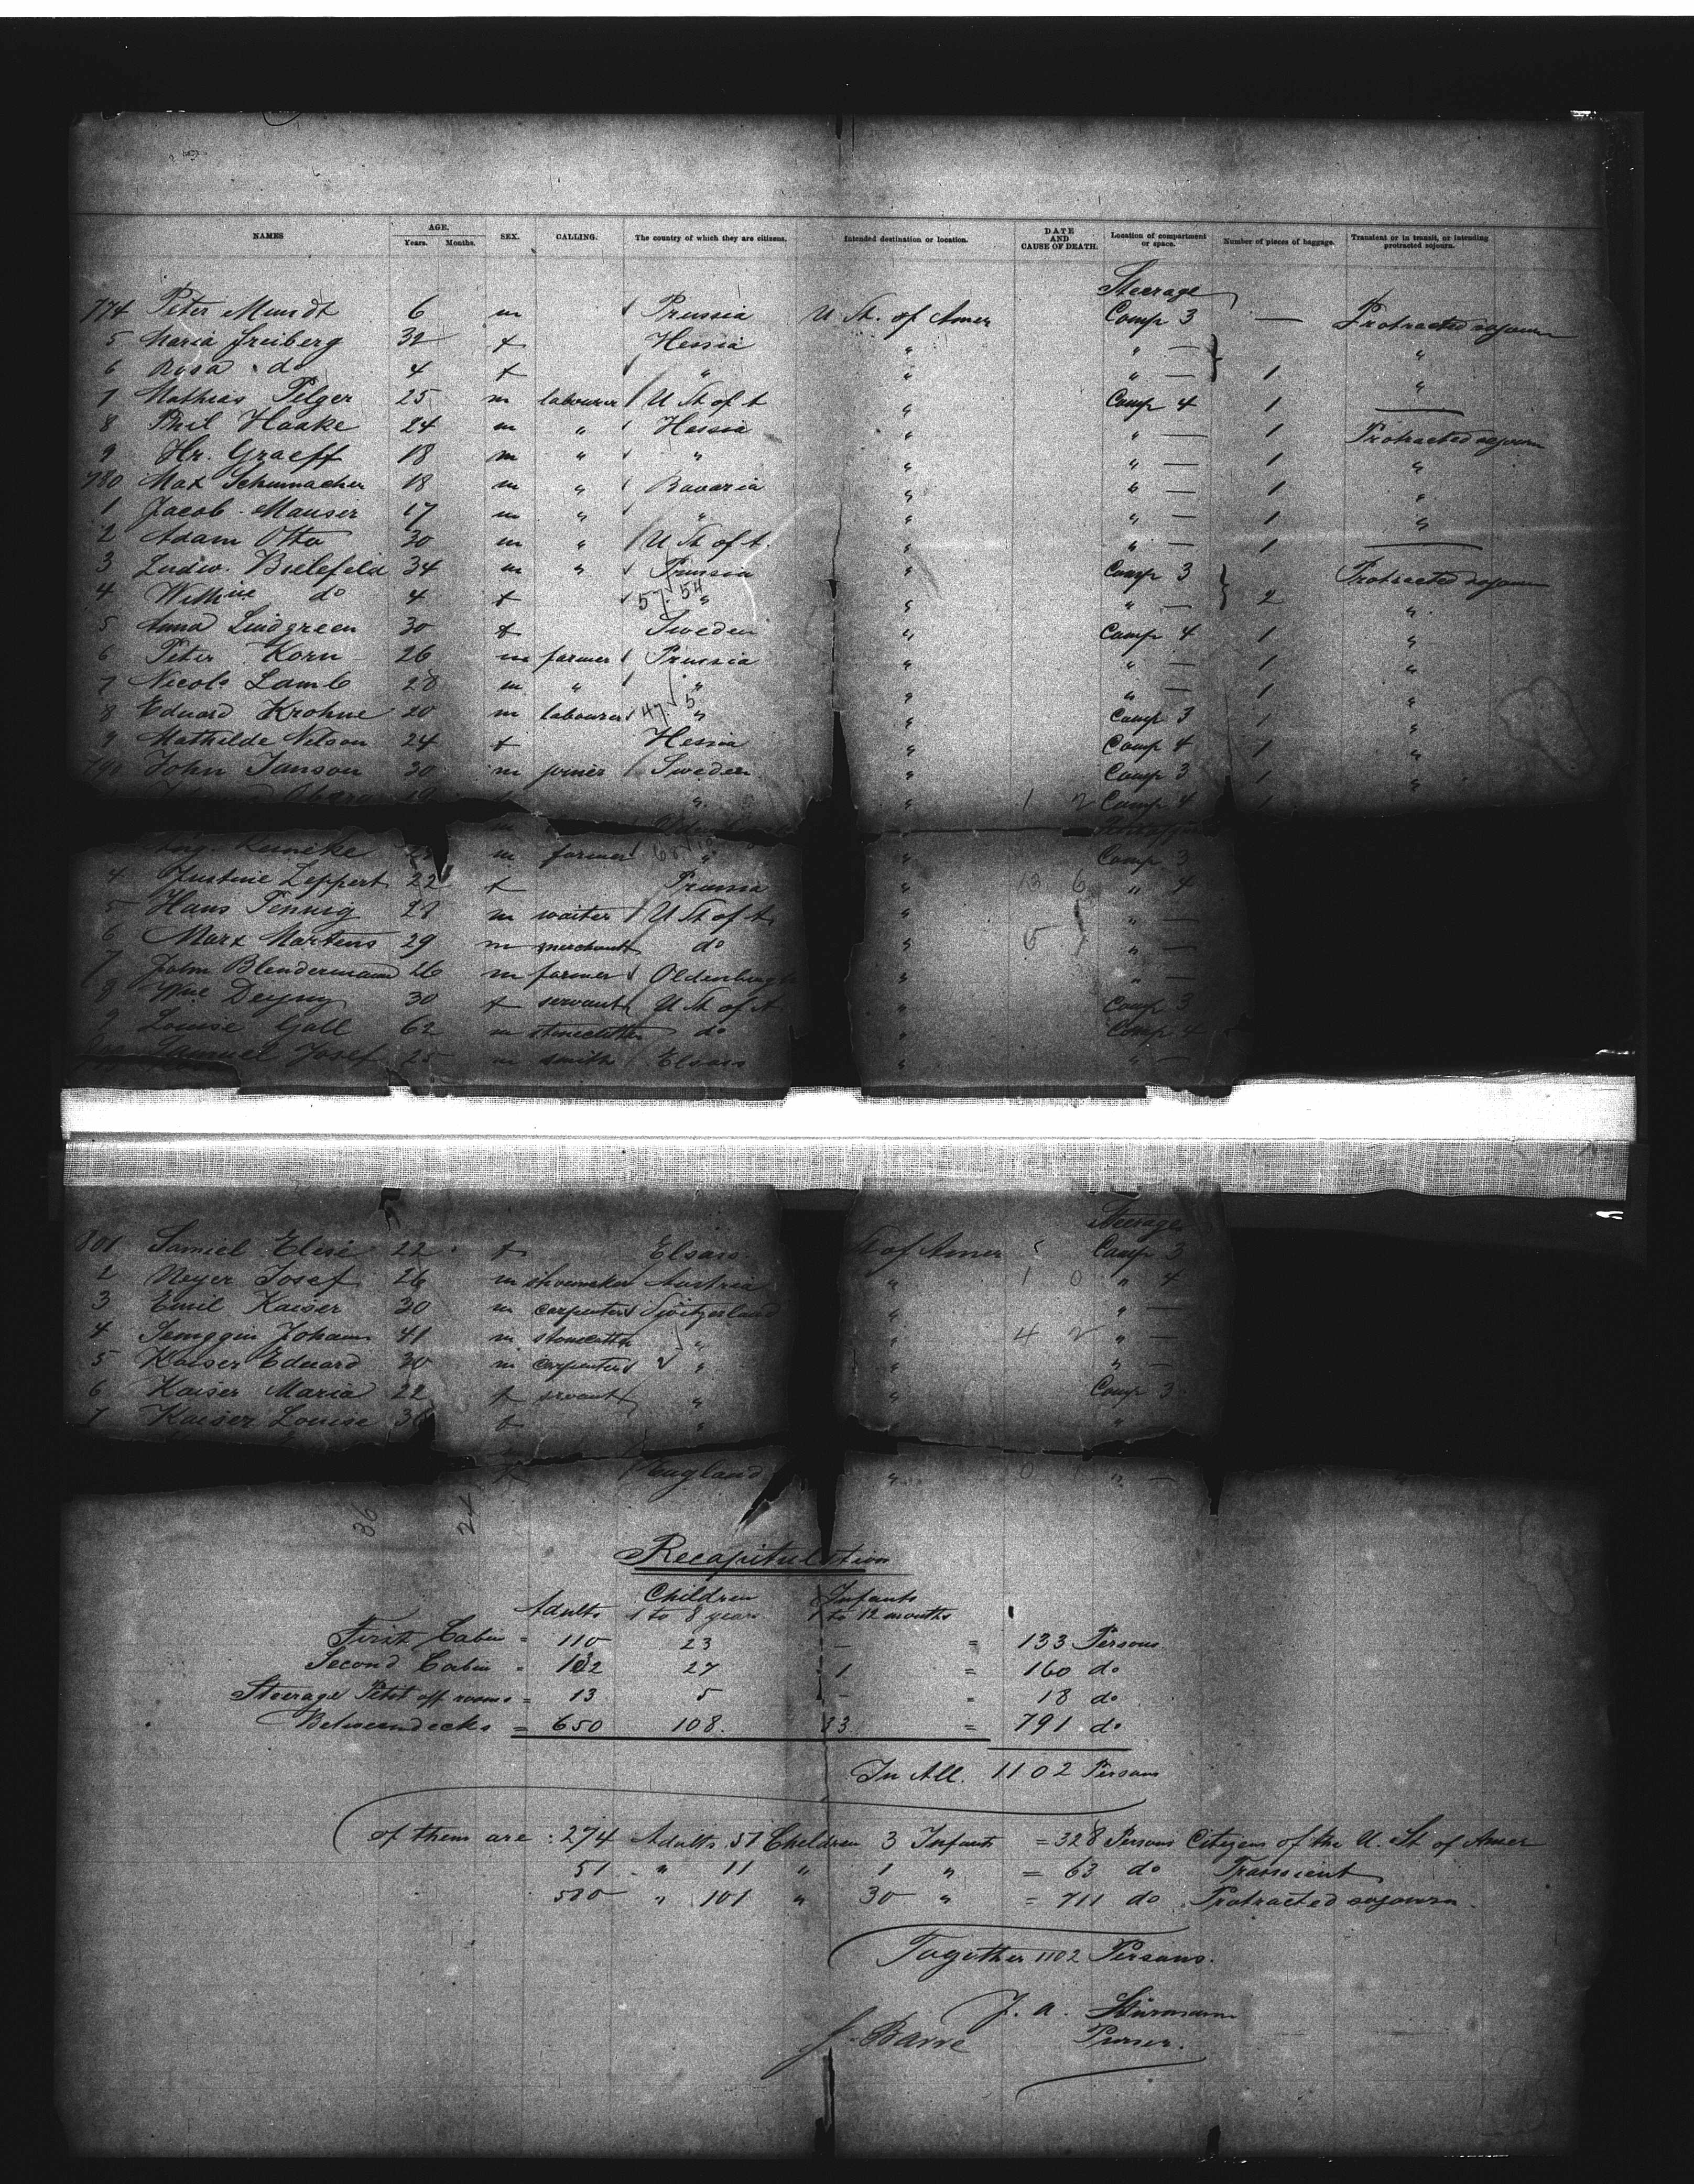 NAMES AGE. Years. Months. SEX. CALLING. The country of which they are citizens. Intended destination or location. DATE AND CAUSE OF DEATH. Location of compartment or space. Number of pieces of baggage. Transient or in transit, or intending protracted sojourn.
Steerage
774 Peter Mundt 6 m Prussia U St. of Amer Comp 3 — Protracted sojourn
5 Maria Freiberg 32 f Hessia " " — "
6 Rosa do 4 f " " " — 1 "
7 Mathias Pelger 25 m labourer U St of A " Comp 4 1 —
8 Phil Haake 24 m " Hessia " " — 1 Protracted sojourn
9 Hr. Graeff 18 m " " " " — 1 "
780 Max Schumacher 18 m " Bavaria " " — 1 "
1 Jacob Mauser 17 m " " " " — 1 "
2 Adam Otto 30 m " U St of A " " — 1 —
3 Ludw. Bielefeld 34 m " Prussia " Comp 3 Protracted sojourn
4 Wilhne do 4 f 57.54 " " " — 2 "
5 Anna Lindgreen 30 f Sweden " Comp 4 1 "
6 Peter Korn 26 m farmer Prussia " " — 1 "
7 Nicols Lamb 28 m " " " " — 1 "
8 Eduard Krohne 20 m labourer 47.5 " " Comp 3 1 "
9 Mathilde Nelson 24 f Hessia " Comp 4 1 "
790 John Janson 30 m joiner Sweden " Comp 3 1 "
Oberg 19 f " " 1 2 Comp 4 1
m
m farmer " " Comp 3
4 Justine Leppert 22 f Prussia " 13 6 " 4
5 Hans Tennig 28 m waiter U St of A " " —
6 Marx Martens 29 m merchant do " 5 " —
7 John Blendermann 26 m farmer Oldenburg " " —
8 Wne 30 f servant U St of A " Comp 3
9 Louise Gall 62 m stonecutter do " Comp 4
Samuel Josef 25 m smith Elsass " " —
Steerage
801 Samiel Elise 22 f Elsass St of Amer Comp 3
2 Meyer Josef 26 m shoemaker Austria " 1 0 " 4
3 Emil Kaiser 30 m carpenter Switzerland " " —
4 Johann 41 m stonecutter " " 4 2 " —
5 Kaiser Eduard 30 m carpenter " " " —
6 Kaiser Maria 22 f servant " " Comp 3
7 Kaiser Louise f " " "
f England " 0 " —
36 24
Recapitulation
Adults Children 1 to 8 years Infants 1 to 12 months
First Cabin = 110 23 — = 133 Persons
Second Cabin = 132 27 1 = 160 do
Steerage off rooms = 13 5 — = 18 do
Betweendecks = 650 108. 33 = 791 do
In All. 1102 Persons
of them are : 274 Adults 51 Children 3 Infants = 328 Persons Citizens of the U. St of Amer
51 " 11 " 1 " = 63 do Transient
580 " 101 " 30 " = 711 do Protracted sojourn
Together 1102 Persons.
J. A. Stürmann
J. Barre Purser.